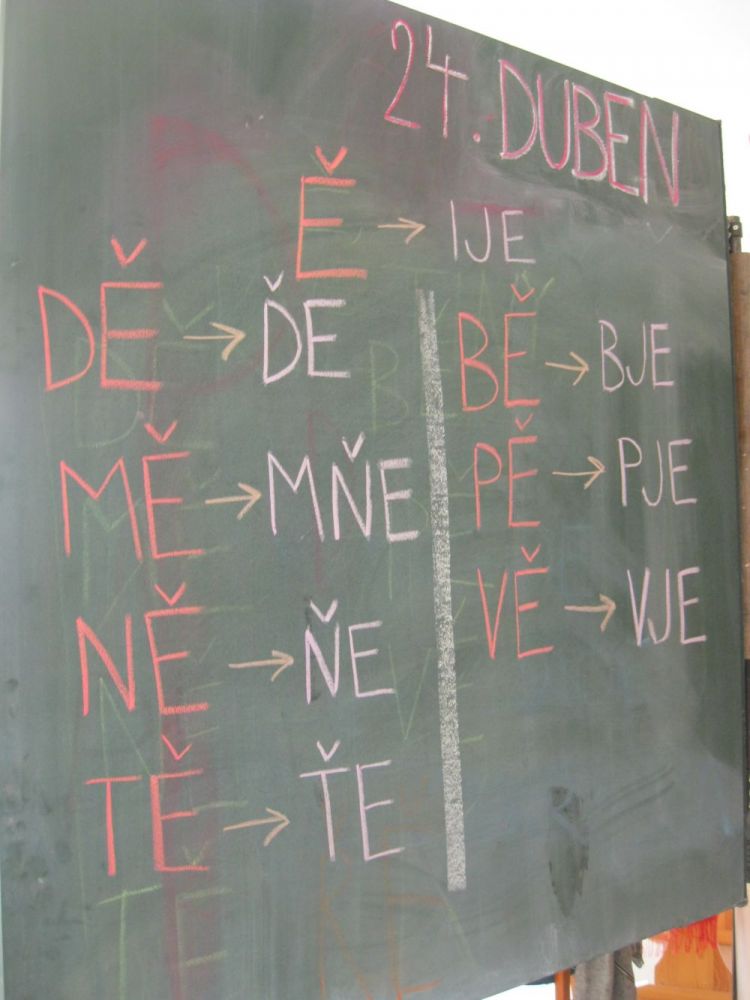 24. DUBEN
Ě → IJE
DĚ → ĎE
MĚ → MŇE
NĚ → ŇE
TĚ → ŤE
BĚ → BJE
PĚ → PJE
VĚ → VJE